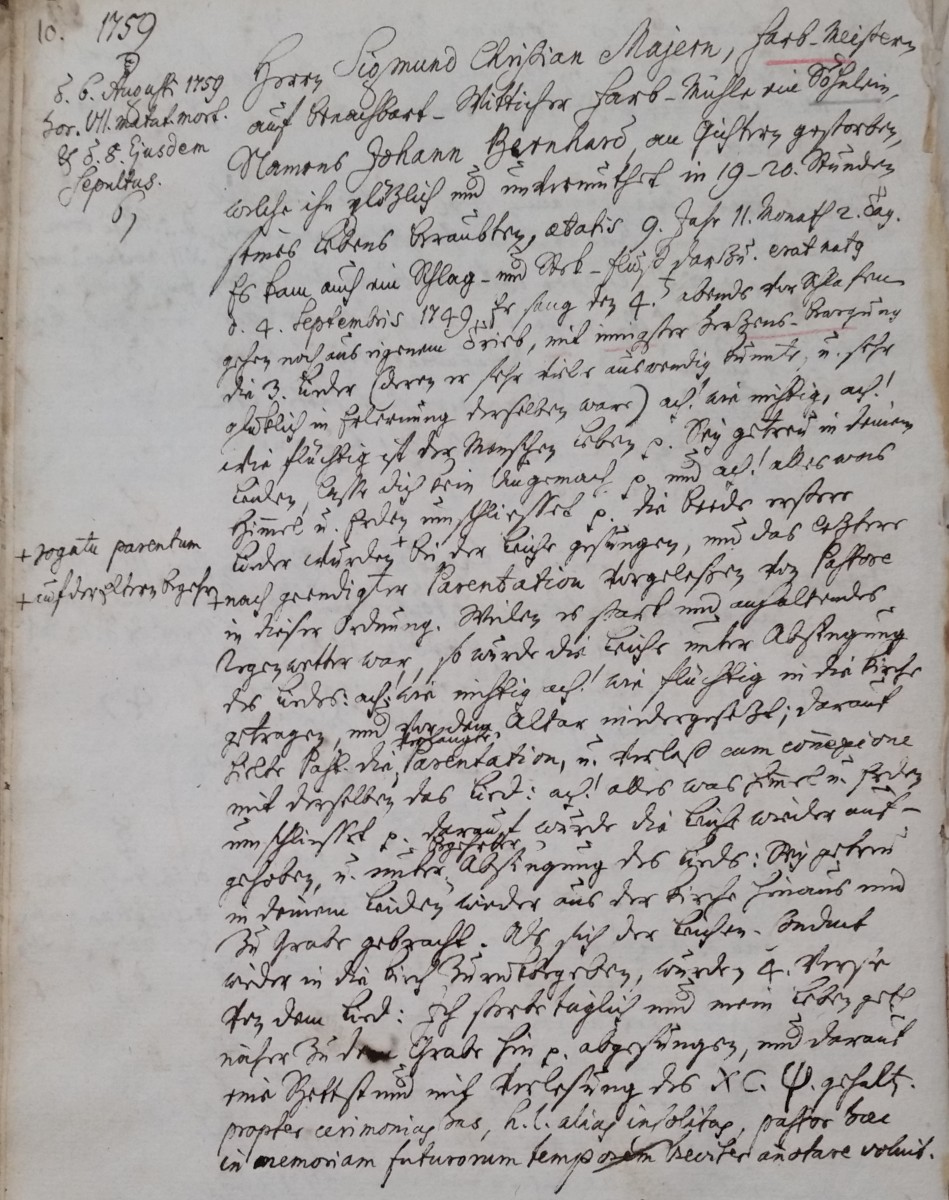 10. 1759
d. 6. Augusti 1759
hor. VII. matut. mort.
& d. 8. Ejusdem
Sepultus.
Herrn Sigmund Christian Majern, Farb-Meistern
auf benachbart-Witticher Farb-Mühle ein Söhnlein,
Namens Johann Bernhard, an Gichtern gestorben,
welche ihn plözlich und unvermuthet in 19-20. Stunden
seines Lebens beraubten, ætatis 9. Jahr 11. Monath 2. Tag.
Es kam auch ein Schlag- und Stek-Fluß darzu. erat natq
d. 4. Septembris 1749. Er sang den 4. abends vor Schlafen
gehen noch aus eigenem Trieb, mit innigster Herzens-Bewegung
die 3. Lieder (deren er sehr viele auswendig kunnte, u. sehr
glüklich in Erlernung derselben ware) ach! wie nichtig, ach!
wie flüchtig ist der Menschen Leben p. Sey getreu in deinem
Leiden, lasse dich kein Ungemach p. und ach! alles was
Himmel u. Erden umschliesset p. die beede erstere
Lieder wurden + bei der Leiche gesungen, und das letztere
+ rogatu parentum
+ auf der Eltern begehren
+ nach geendigter Parentation vorgelesen von Pastore
in dieser Ordnung. Weilen es stark und anhaltendes
Regenwetter war, so wurde die Leiche unter Absingung
des Liedes: ach! wie nichtig ach! wie flüchtig in die Kirche
getragen, und vor dem Altar niedergesetzt; darauf
hielte Past. die Parentation, u. verlaß cum connexione
mit derselben das Lied: ach! alles was Himmel u. Erden
umschliesset p. darauf wurde die Leiche wieder auf-
gehoben, u. unter Absingung des Lieds: Sey getreu
in deinem Leiden wieder aus der Kirche hinaus und
zu Grabe gebracht. Als sich der Leichen-Conduct
wieder in die Kirch zurükbegeben, wurden 4. Verse
von dem Lied: Ich sterbe täglich und mein Leben geht
näher zu dem Grabe hin p. abgesungen, und darauf
eine Bettstund mit Verlesung des XC. Ψ. gehalt.
propter cerimonias has, h. l. alias insolitas, pastor hæc
in memoriam futurorum temporum breviter anotare voluit.